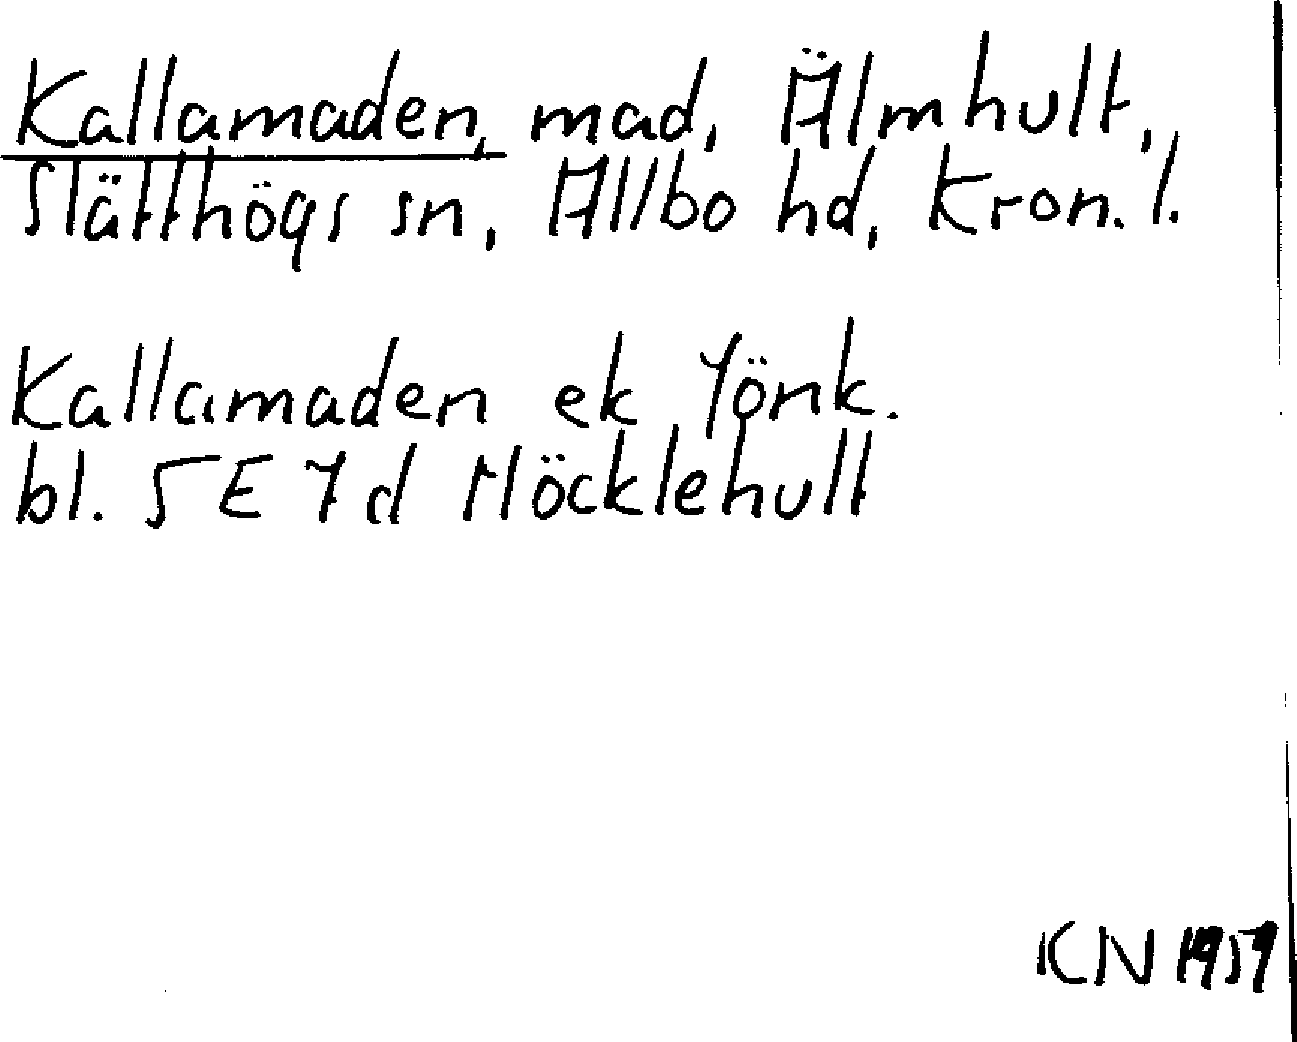 Kallamaden, mad, Älmhult,
Slätthögs sn, Allbo hd, Kron. l.
Kallamaden ek Jönk.
bl. 5 E 7 d Möcklehult
KN 1959